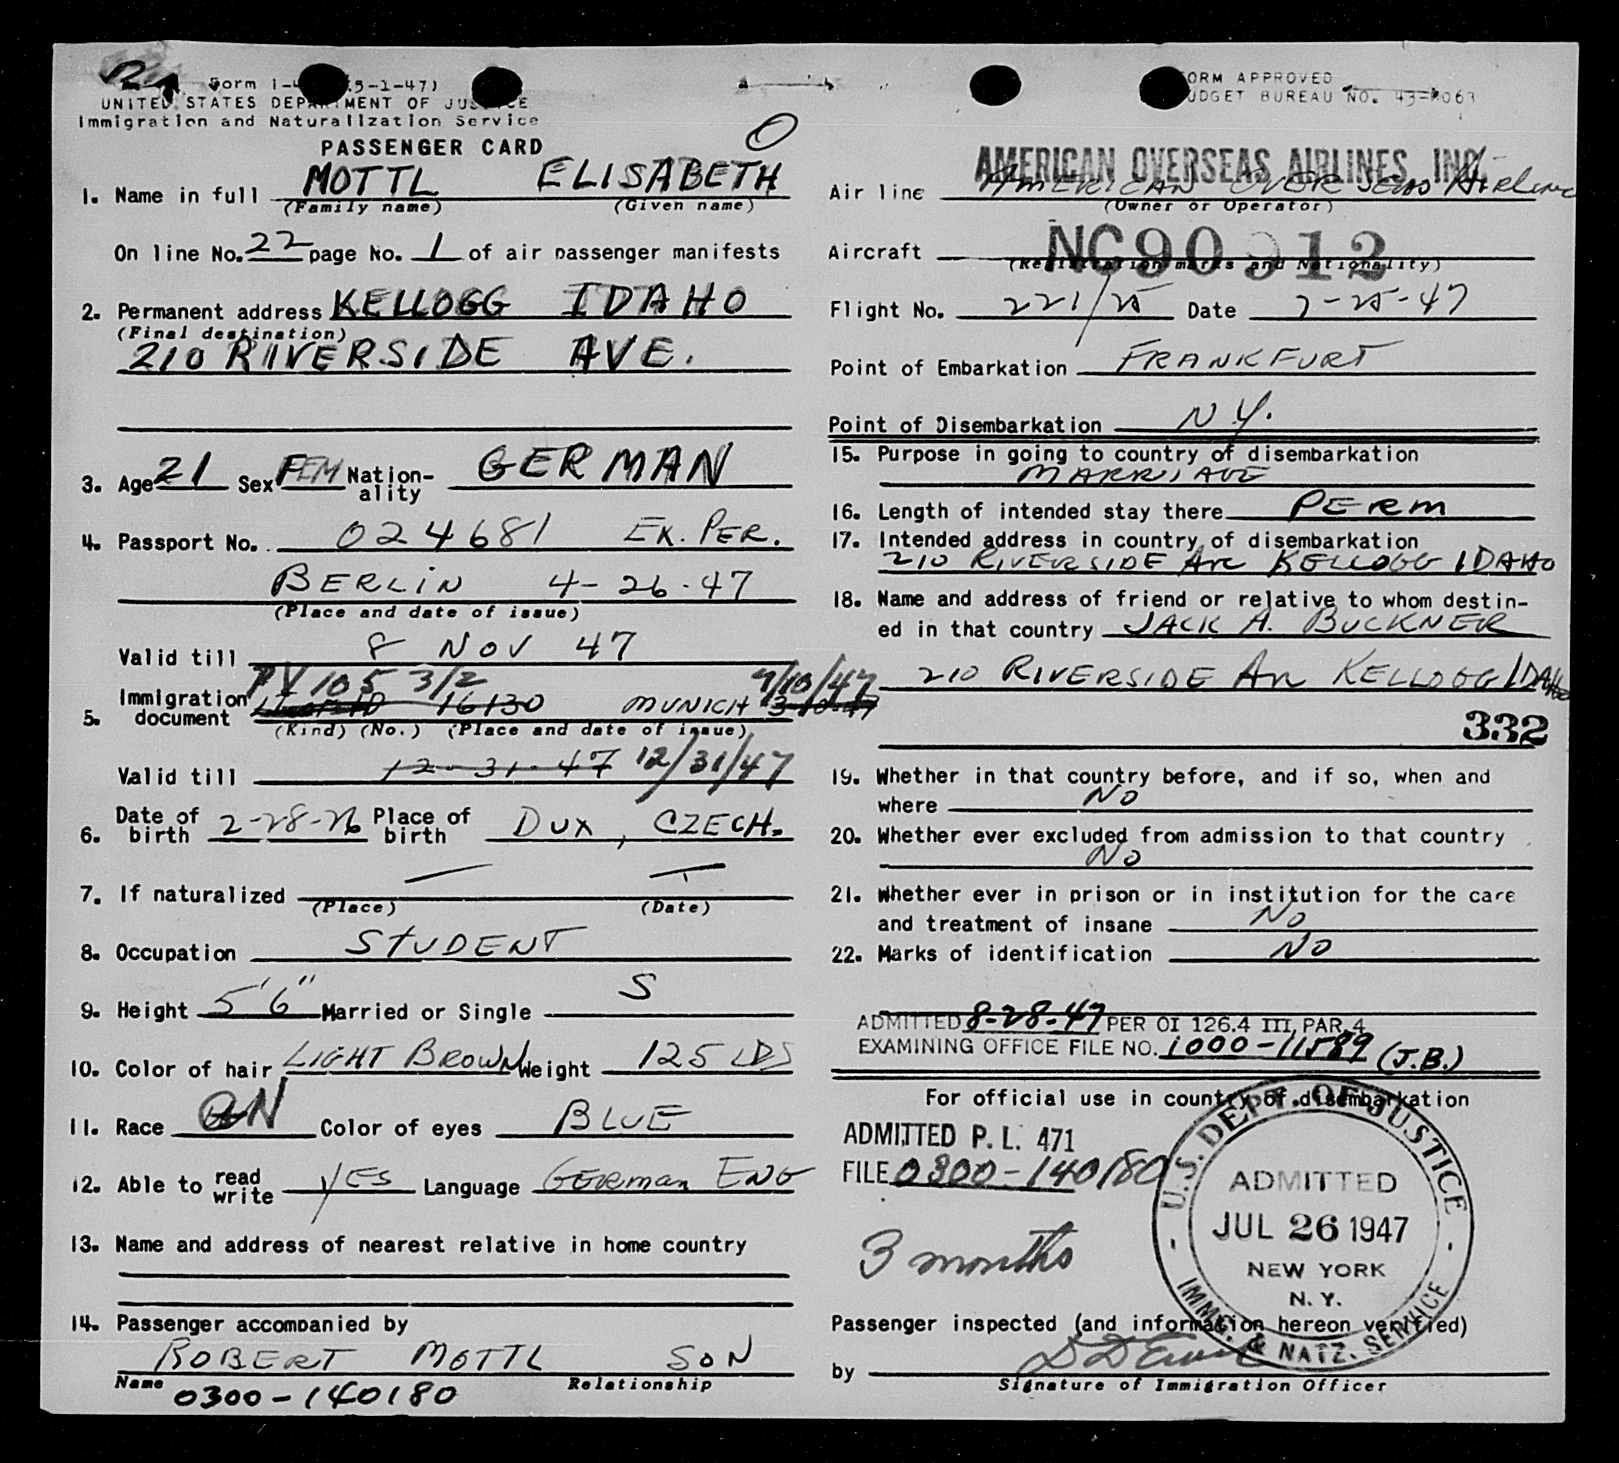 Form I-4 (5-1-47)
UNITED STATES DEPARTMENT OF JUSTICE
Immigration and Naturalization Service
PASSENGER CARD
1. Name in full MOTTL ELISABETH
(Family name) (Given name)
On line No. 22 page No. 1 of air passenger manifests
2. Permanent address KELLOGG IDAHO
(Final destination)
210 RIVERSIDE AVE.
3. Age 21 Sex FEM Nationality GERMAN
4. Passport No. 024681 EX. PER.
BERLIN 4-26-47
(Place and date of issue)
Valid till 8 NOV 47
PV 105 3/2 9/10/47
5. Immigration document 16130 MUNICH 3-10-47
(Kind) (No.) (Place and date of issue)
Valid till 12-31-47 12/31/47
6. Date of birth 2-28-26 Place of birth DUX, CZECH.
7. If naturalized — —
(Place) (Date)
8. Occupation STUDENT
9. Height 5'6" Married or Single S
10. Color of hair LIGHT BROWN Weight 125 LBS
11. Race Color of eyes BLUE
12. Able to read write YES Language GERMAN ENG
13. Name and address of nearest relative in home country
14. Passenger accompanied by
ROBERT MOTTL SON
Name Relationship
0300-140180
FORM APPROVED
BUDGET BUREAU NO. 43-R063
AMERICAN OVERSEAS AIRLINES, INC.
Air line AMERICAN OVERSEAS AIRLINES
(Owner or Operator)
Aircraft NC90912
(Registration marks and Nationality)
Flight No. 221/25 Date 7-25-47
Point of Embarkation FRANKFURT
Point of Disembarkation N.Y.
15. Purpose in going to country of disembarkation
MARRIAGE
16. Length of intended stay there PERM
17. Intended address in country of disembarkation
210 RIVERSIDE AVE KELLOGG IDAHO
18. Name and address of friend or relative to whom destin-
ed in that country JACK A. BUCKNER
210 RIVERSIDE AVE KELLOGG IDAHO
332
19. Whether in that country before, and if so, when and
where NO
20. Whether ever excluded from admission to that country
NO
21. Whether ever in prison or in institution for the care
and treatment of insane NO
22. Marks of identification NO
ADMITTED 8-28-47 PER OI 126.4 III, PAR. 4
EXAMINING OFFICE FILE NO. 1000-11589 (J.B.)
For official use in country of disembarkation
ADMITTED P. L. 471
FILE 0300-140180
3 months
U.S. DEPT. OF JUSTICE
ADMITTED
JUL 26 1947
NEW YORK
N. Y.
IMMG. & NATZ. SERVICE
Passenger inspected (and information hereon verified)
by
Signature of Immigration Officer